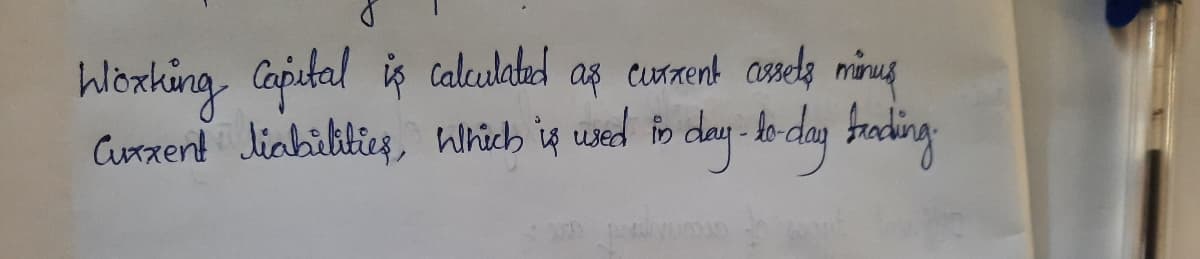 Working Capital is calculated as current assets minus
Current liabilities, which is used in day-to-day trading.